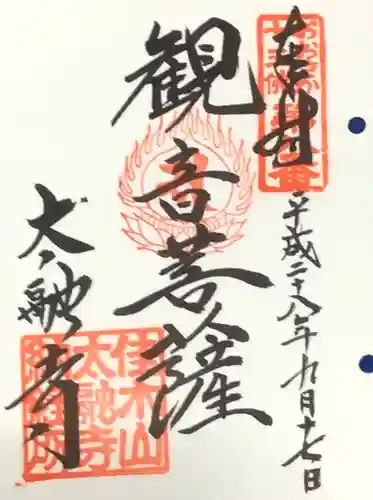 奉拝
平成二十八年九月十七日
観音菩薩
太融寺
佳木山
太融寺